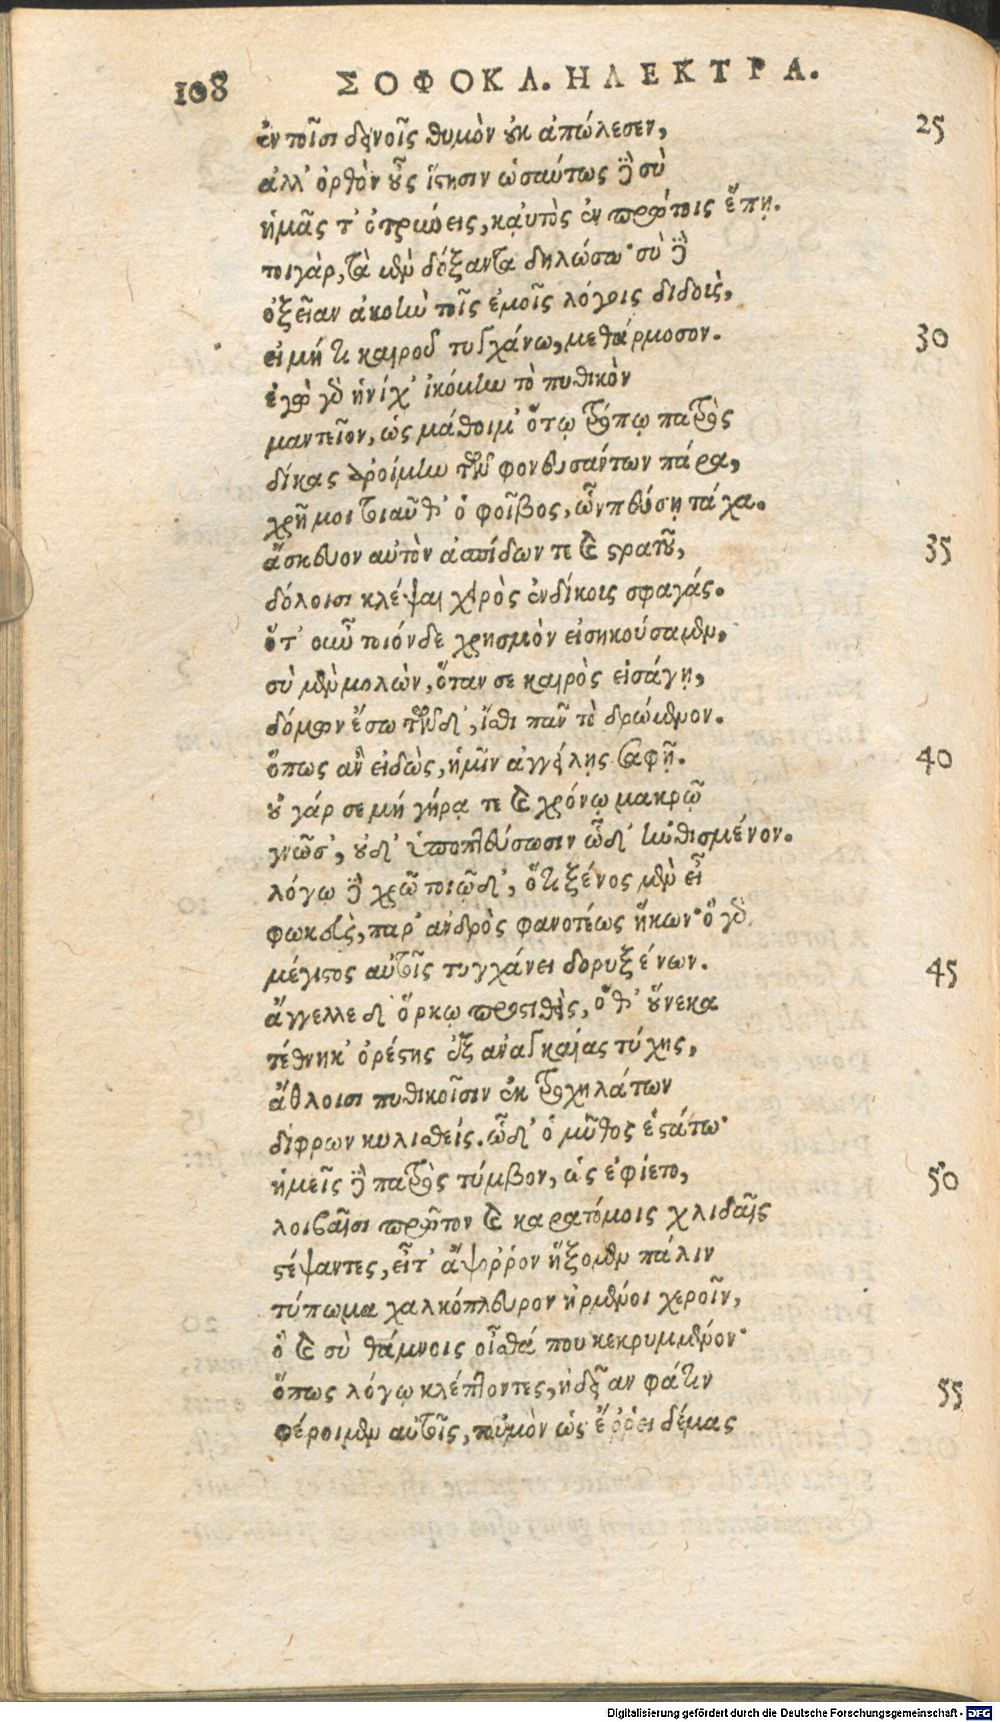 108 ΣΟΦΟΚΛ. ΗΛΕΚΤΡΑ.
ἐν τοῖσι δεινοῖς θυμὸν οὐκ ἀπώλεσεν, 25
ἀλλ' ὀρθὸν οὖς ἵστησιν ὡσαύτως δὲ σὺ
ἡμᾶς τ' ὀτρύνεις, καὐτὸς ἐν πρώτοις ἕπῃ.
τοιγὰρ, τὰ μὲν δόξαντα δηλώσω· σὺ δὲ
ὀξεῖαν ἀκοὴν τοῖς ἐμοῖς λόγοις διδοὺς,
εἰ μή τι καιροῦ τυγχάνω, μεθάρμοσον. 30
ἐγὼ γὰρ ἡνίχ' ἱκόμην τὸ πυθικὸν
μαντεῖον, ὡς μάθοιμ' ὅτῳ τρόπῳ πατρὸς
δίκας ἀροίμην τῶν φονευσάντων πάρα,
χρῇ μοι τοιαῦθ' ὁ φοῖβος, ὧν πεύσῃ τάχα.
ἄσκευον αὐτὸν ἀσπίδων τε καὶ στρατοῦ, 35
δόλοισι κλέψαι χειρὸς ἐνδίκοις σφαγάς.
ὅτ' οὖν τοιόνδε χρησμὸν εἰσηκούσαμεν,
σὺ μὲν μολὼν, ὅταν σε καιρὸς εἰσάγῃ,
δόμων ἔσω τῶνδ', ἴσθι πᾶν τὸ δρώμενον.
ὅπως ἂν εἰδὼς, ἡμῖν ἀγγείλῃς σαφῆ. 40
οὐ γάρ σε μή γήρᾳ τε καὶ χρόνῳ μακρῷ
γνῶσ', οὐδ' ὑποπτεύσωσιν ὧδ' ἠνθισμένον.
λόγῳ δὲ χρῶ τοιῷδ', ὅτι ξένος μὲν εἶ
φωκεὺς, παρ' ἀνδρὸς φανοτέως ἥκων· ὃ γὰρ
μέγιστος αὐτοῖς τυγχάνει δορυξένων. 45
ἄγγελλε δ' ὅρκῳ προστιθεὶς, ὅθ' οὕνεκα
τέθνηκ' ὀρέστης ἐξ ἀναγκαίας τύχης,
ἄθλοισι πυθικοῖσιν ἐκ τροχηλάτων
δίφρων κυλισθείς. ὧδ' ὁ μῦθος ἑστάτω·
ἡμεῖς δὲ πατρὸς τύμβον, ὡς ἐφίετο, 50
λοιβαῖσι πρῶτον καὶ καρατόμοις χλιδαῖς
στέψαντες, εἶτ' ἄψορρον ἥξομεν πάλιν
τύπωμα χαλκόπλευρον ἠρμένοι χεροῖν,
ὃ καὶ σὺ θάμνοις οἶσθά που κεκρυμμένον·
ὅπως λόγῳ κλέπτοντες, ἡδεῖαν φάτιν 55
φέροιμεν αὐτοῖς, τοὐμὸν ὡς ἔῤῥει δέμας
Digitalisierung gefördert durch die Deutsche Forschungsgemeinschaft - DFG